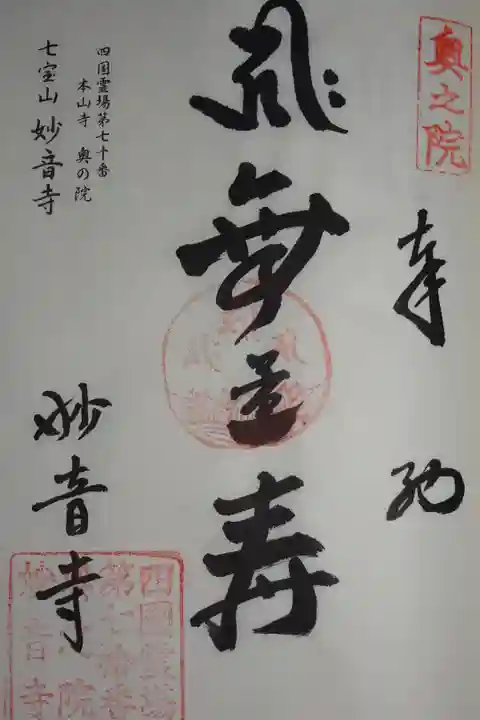 奥之院
奉納
𑖮𑖿𑖨𑖱𑖾
無量寿
四国霊場第七十番
本山寺 奥の院
七宝山 妙音寺
妙音寺
四國霊場
第七拾番
奥之院
妙音寺